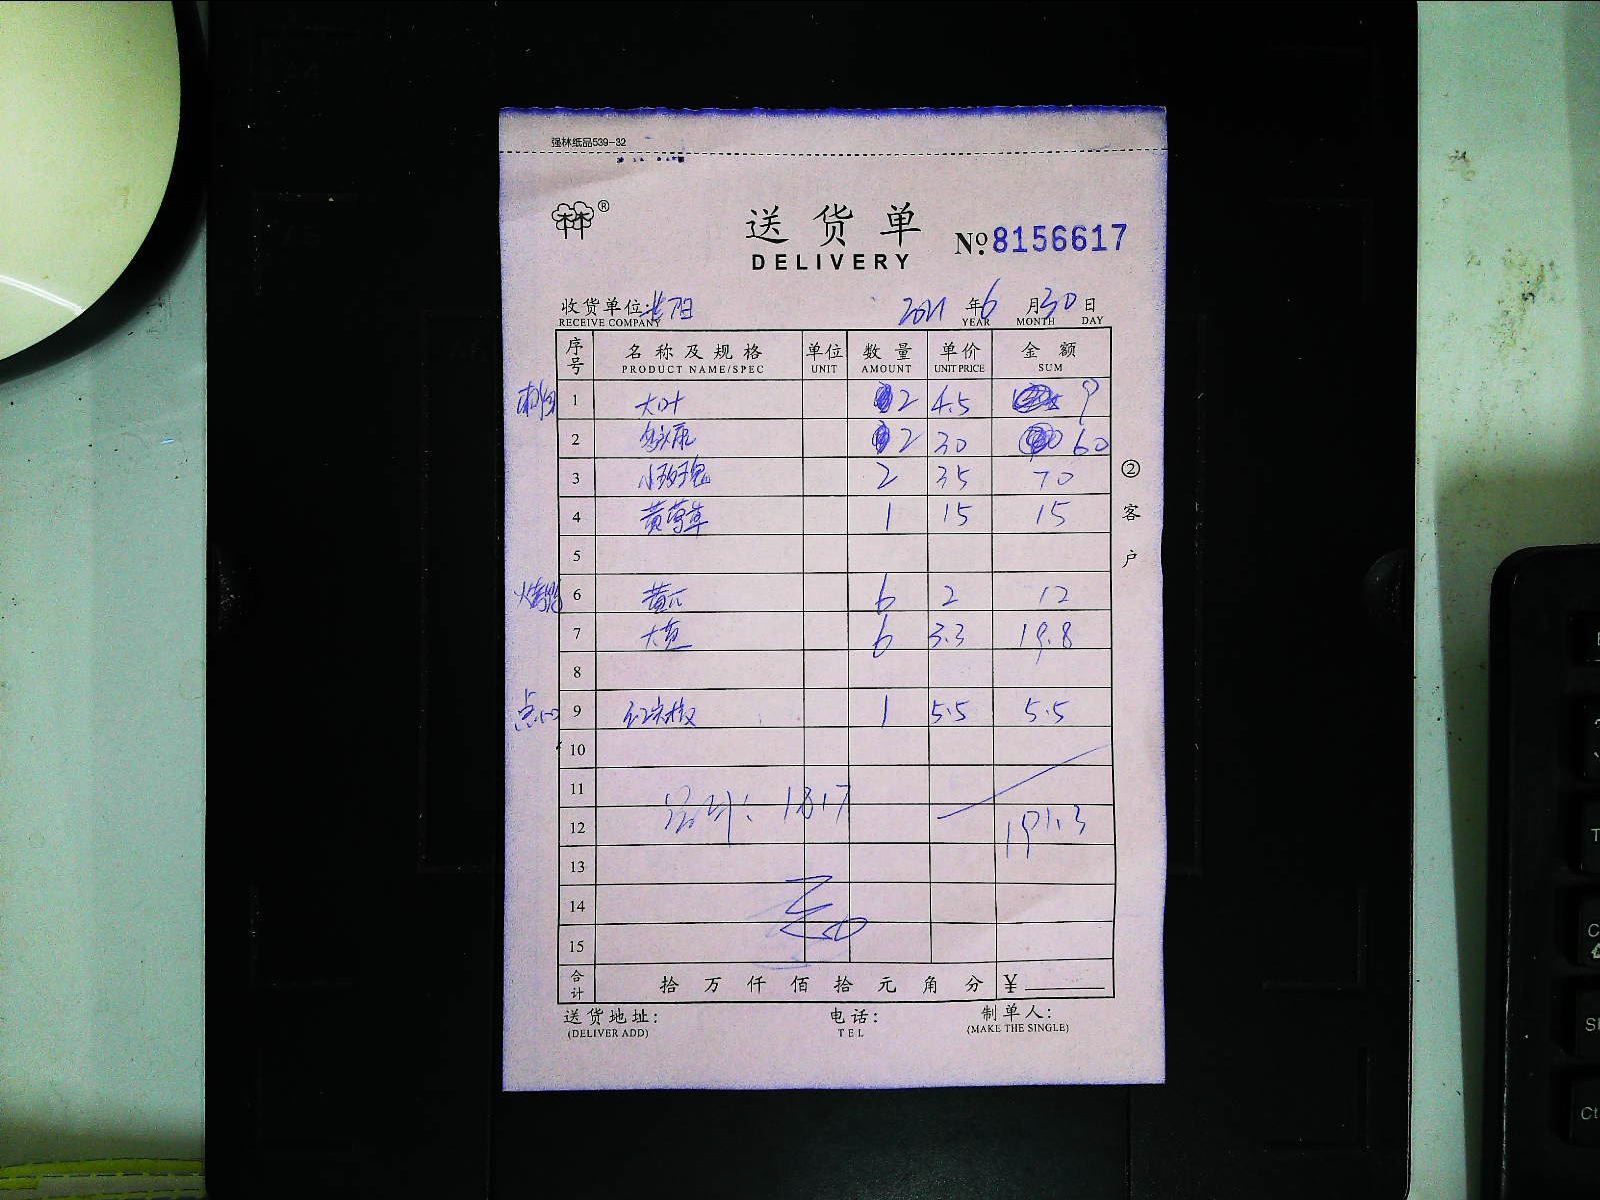 强林纸品539-32
林林®
送货单
DELIVERY
№ 8156617
收货单位: 长阳 2021 年 6 月 30 日
RECEIVE COMPANY YEAR MONTH DAY
序号 名称及规格 单位 数量 单价 金额
PRODUCT NAME/SPEC UNIT AMOUNT UNIT PRICE SUM
1 大叶 2 4.5 9
2 2 30 60
3 小玫瑰 2 35 70
4 黄莺草 1 15 15
5
烧腊 6 黄瓜 6 2 12
7 大葱 6 3.3 19.8
8
点心 9 红尖椒 1 5.5 5.5
10
11
12 191.3
13
14
15
合计 拾 万 仟 佰 拾 元 角 分 ¥
送货地址: 电话: 制单人:
(DELIVER ADD) TEL (MAKE THE SINGLE)
② 客户